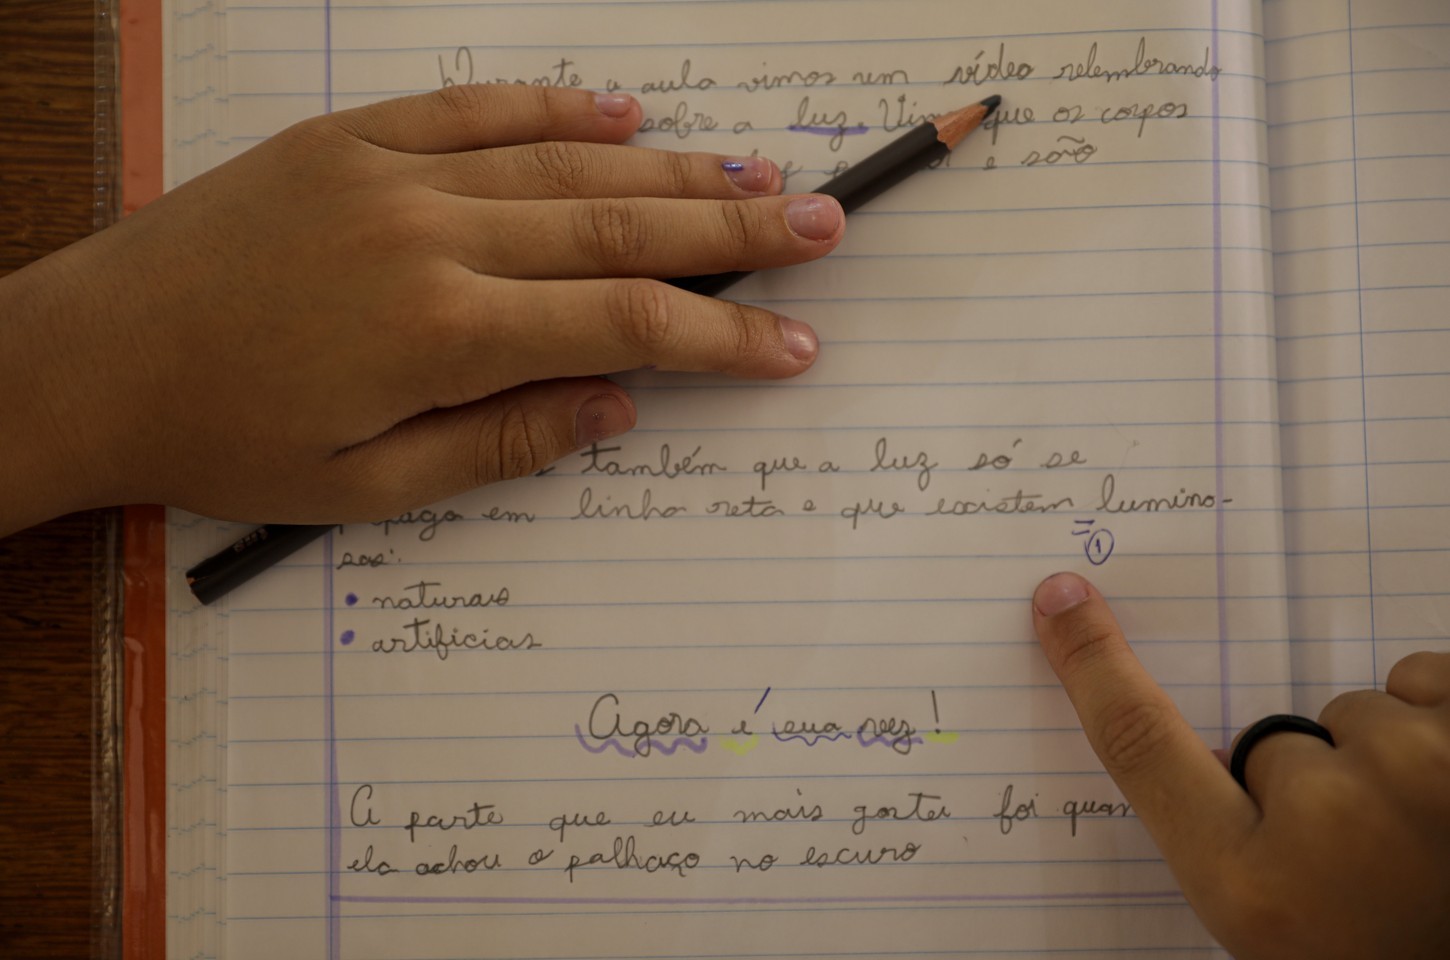 Durante a aula vimos um vídeo relembrando
sobre a luz. que os corpos
e são
também que a luz só se
em linha reta e que existem lumino-
sos:
1
• naturais
• artificias
Agora é sua vez!
A parte que eu mais gostei foi
ela achou o palhaço no escuro